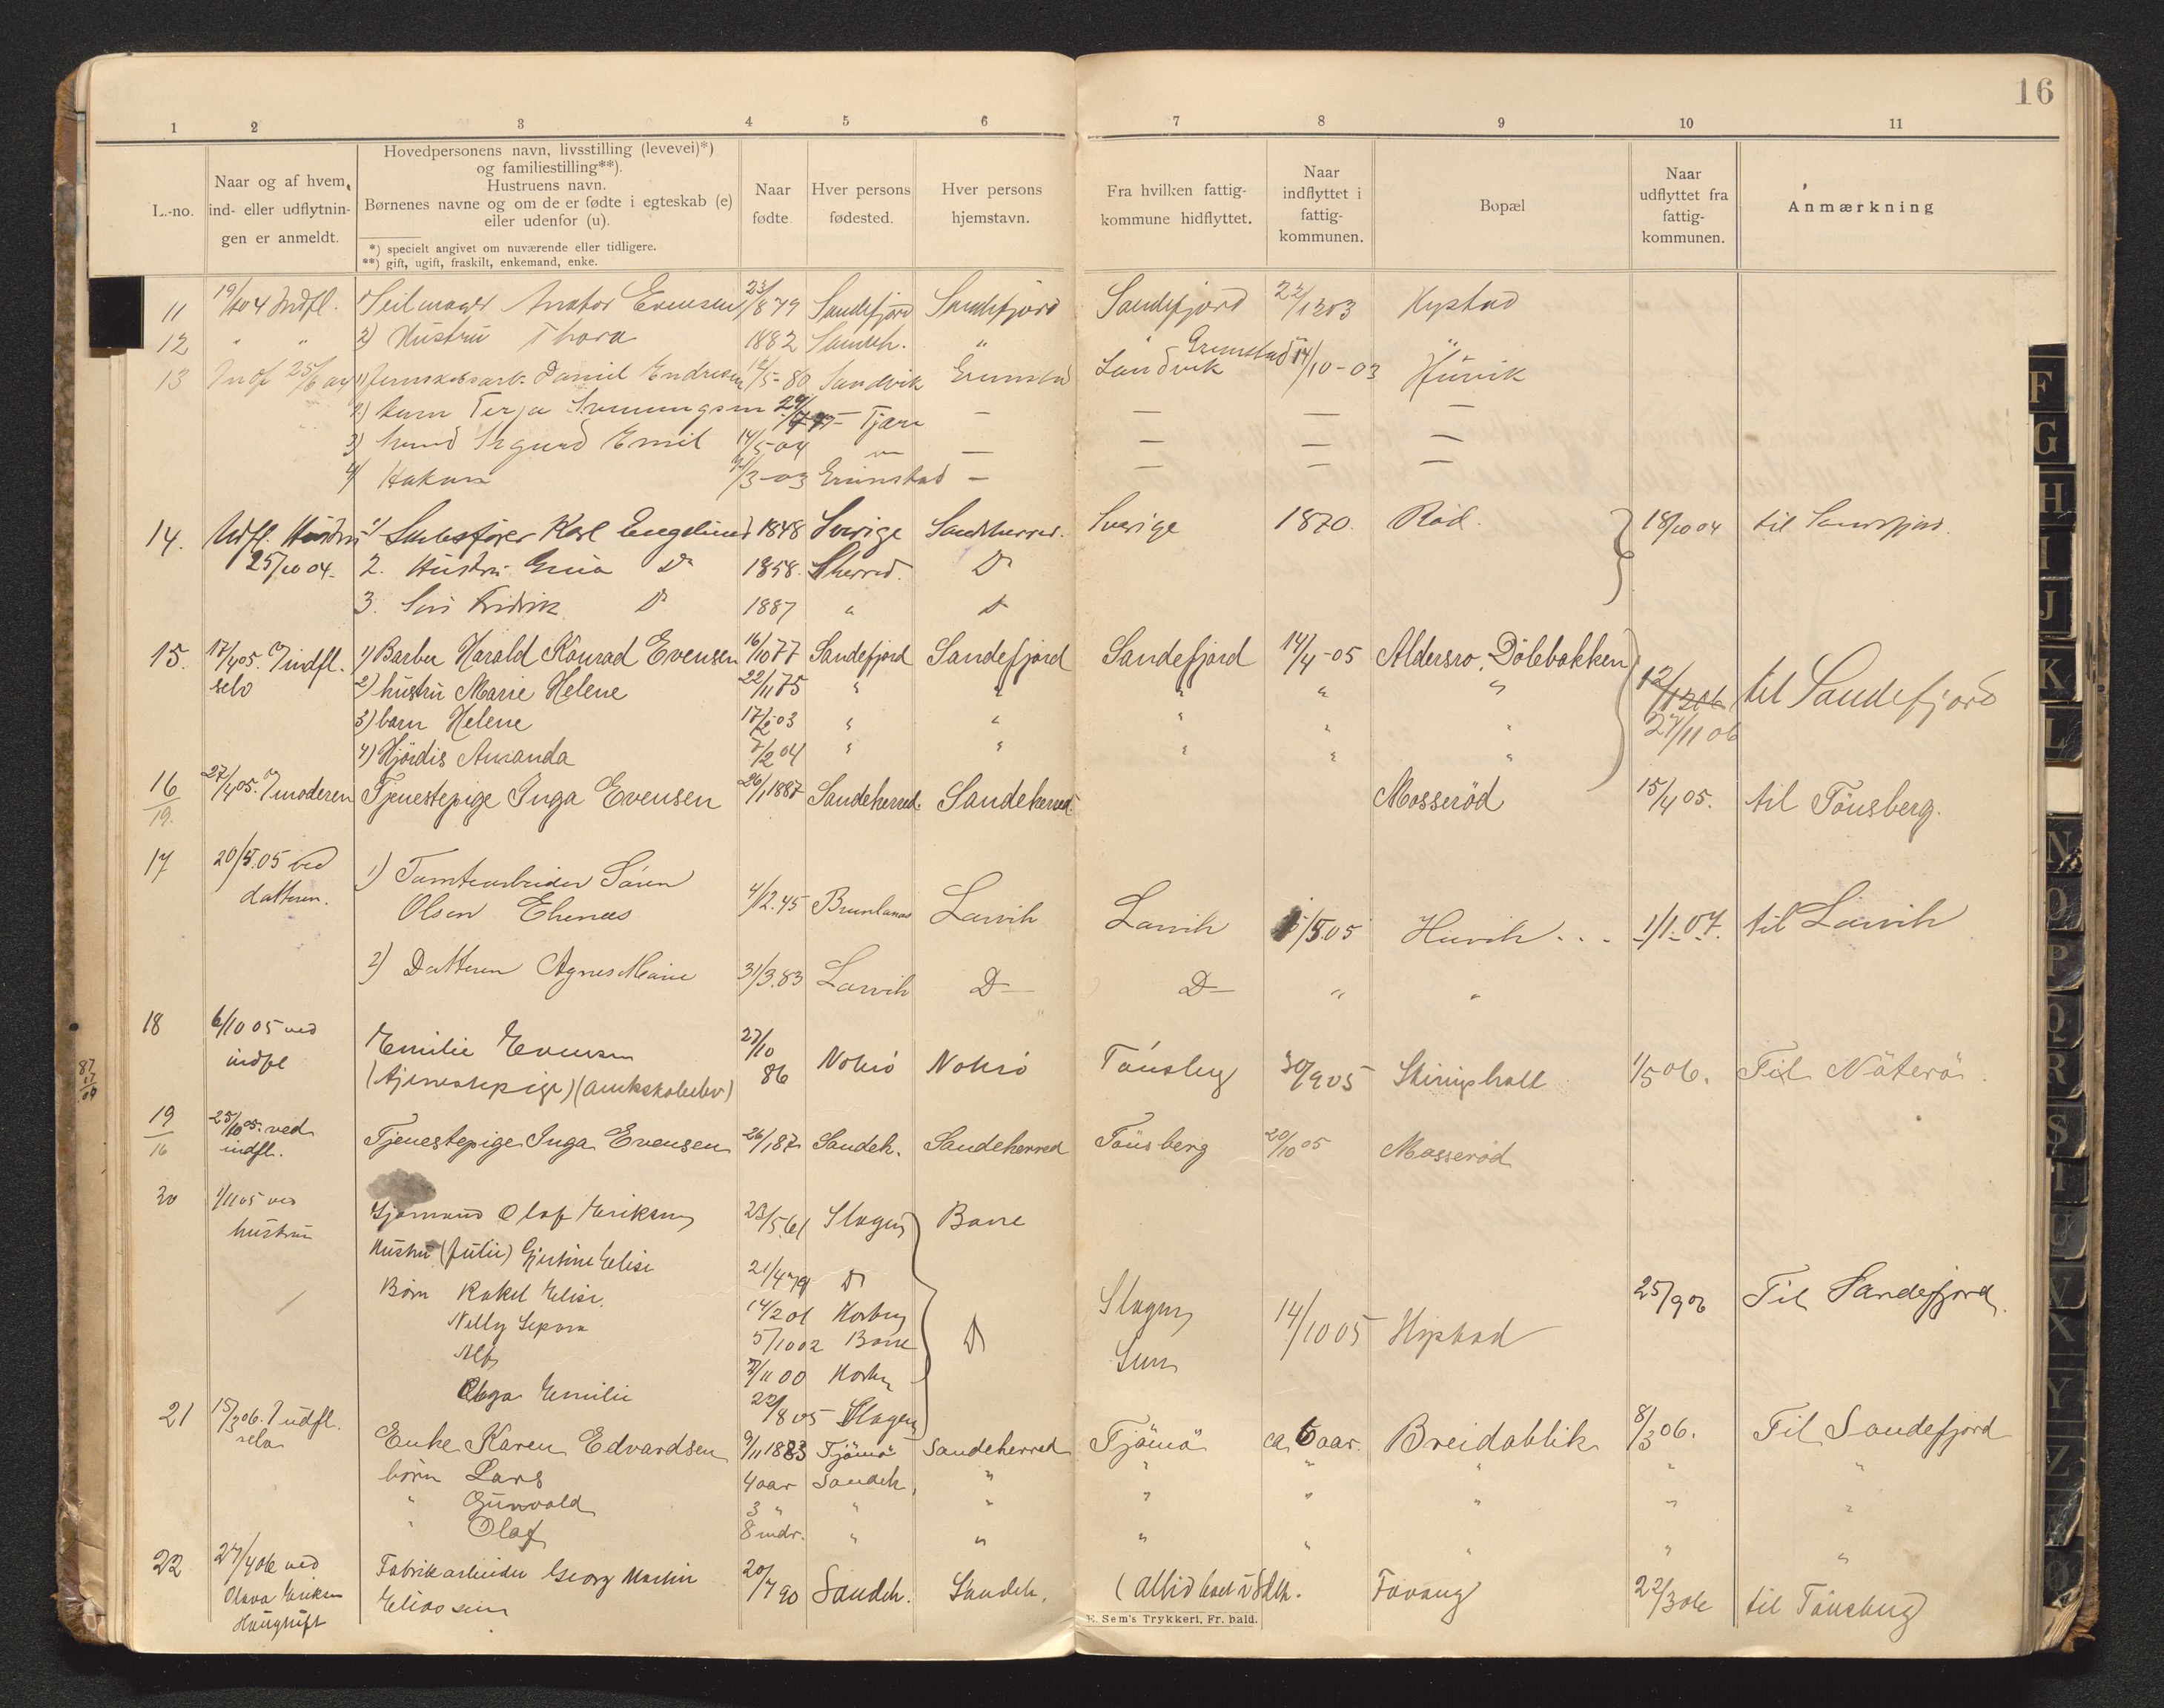 16
1 2 3 4 5 6 7 8 9 10 11
L.-no.
Naar og af hvem
ind- eller udflytnin-
gen er anmeldt.
Hovedpersonens navn, livsstilling (levevei)*)
og familiestilling**).
Hustruens navn.
Børnenes navne og om de er fødte i egteskab (e)
eller udenfor (u).
*) specielt angivet om nuværende eller tidligere.
**) gift, ugift, fraskilt, enkemand, enke.
Naar
fødte.
Hver persons
fødested.
Hver persons
hjemstavn.
Fra hvilken fattig-
kommune hidflyttet.
Naar
indflyttet i
fattig-
kommunen.
Bopæl
Naar
udflyttet fra
fattig-
kommunen.
Anmærkning
11 19/10 4 Indfl. 1) Seilmager Anator Evensen 23/8 79 Sandefjord Sandefjord Sandefjord 22/12 03 Hystad
12 " " 2) Hustru Thora 1882 Sandeh. "
13 Indf 25/6 04 1) Daniel Endresen 12/5-80 Landvik Grimstad Landvik Grimstad 14/10-03 Huvik
2) barn Terje — Tjøme — — — —
3) Sigurd Emil 14/5-04 " — — — —
4) Hakon /3-03 Grimstad — — — —
14. Udfl. Hustru 1) Karl Englund 1848 Sverige Sandeherred. Sverige 1870. Rød. 18/10 04 til Sandefjord.
25/10 04. 2. Hustru Do 1858. Sherred. Do
3. Søn Fridrik Do 1887 " Do
15. 17/4 05. Indfl. 1) Barber Harald Konrad Evensen 16/10 77 Sandefjord Sandefjord Sandefjord 14/4-05 Aldersro, Dølebakken 12/12 06 til Sandefjord
selv 2) hustru Marie Helene 22/11 75 " " " " " 27/11 06
3) barn Helene 17/2-03 " " " " "
4) Hjørdis Amanda 7/2 04 " " " " "
16/19. 27/4 05. moderen Tjenestepige Inga Evensen 26/1 1887 Sandeherred. Sandeherred. Mosserød 15/4 05. til Tönsberg.
17 20/5.05 ved 1) Tomtearbeider Sören
datteren. Olsen Ehenæs 4/12.45 Brunlanæs Larvik Larvik /5.05 Huvik . . . 1/1.07. til Larvik
2) Datteren Agnes Marie 31/3.83 Larvik D— D— " "
18 6/10 05 ved Emilie Evensen 27/10
indfl (tjenestepige) (amtskoleelev) 86 Noterö Noterö Tönsberg 30/9 05 Skiringshall 1/5 06. Til Nöterö.
87/17/09
19/16 25/10 05. ved Tjenestepige Inga Evensen 26/1 87 Sandeh. Sandeherred Tönsberg 20/10 05 Mosserød
indfl.
20 1/11 05 ved Sjømand Olaf Eriksen 23/5.61 Slagen Borre
hustrun Hustru (Julie) Gjertine Elise 21/4 79 Do
Børn Rakel Elise. 14/2 01 Horten Slagen 14/10 05 Hystad 25/9 06 Til Sandefjord.
Nelly 5/10 02 Borre Do Sem
Alf 7/11 00 Horten
Olga Emilie 22/8 05 Slagen
21 15/3 06. udfl. Enke Karen Edvardsen 9/11 1883 Tjömö Sandeherred Tjömö ca 6 aar. Breidablik 8/3 06. Til Sandefjord
selv børn Lars 4 aar Sandeh. " " " " " "
" Gunvald 3 " " " " " " " "
" Olaf 8 mdr. " " " " " " "
22 27/4 06 ved Fabrikarbeider Georg Martin 20/7 90 Sandeh. Sandeh. (altid boet i Sdeh. Fevang 22/3 06 til Tönsberg
Olava Eriksen Eliassen
E. Sem's Trykkeri, Fr. hald.
F G H I J K L N O P Q R S T U V X Y Z Ø